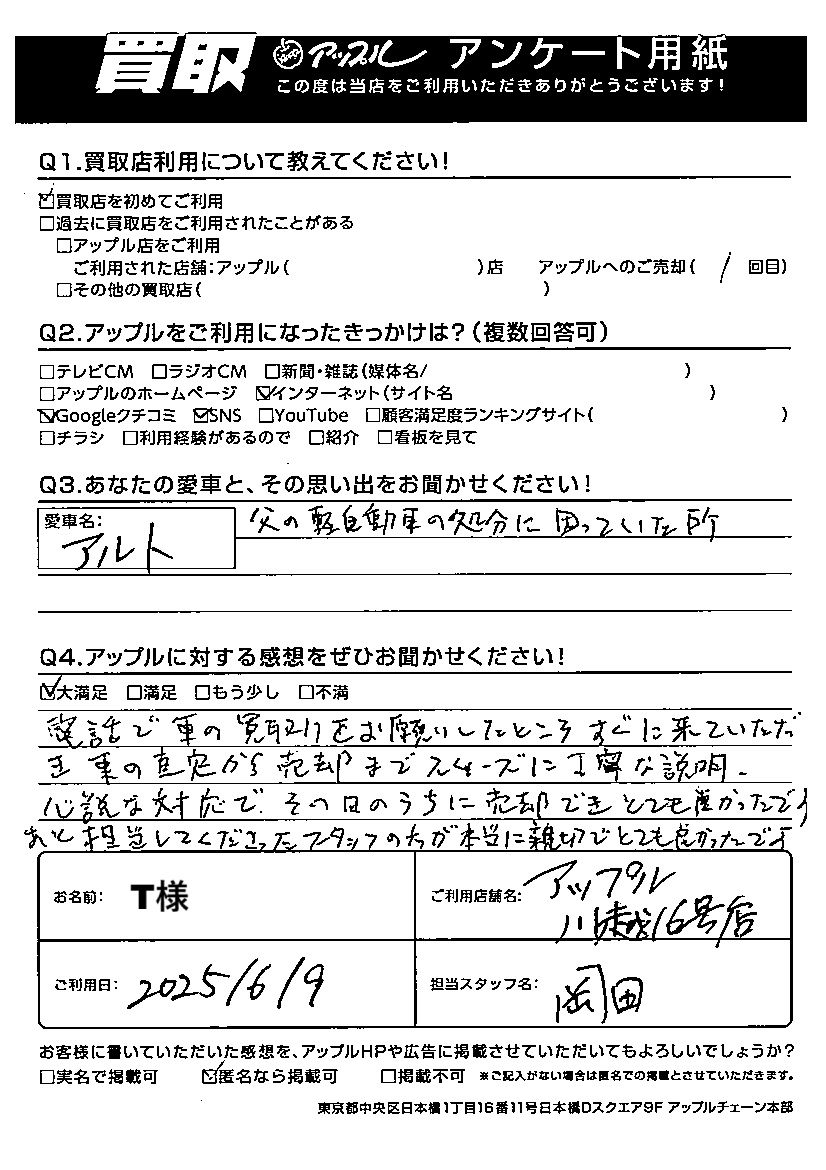 買取 アップル アンケート用紙
この度は当店をご利用いただきありがとうございます!
Q1.買取店利用について教えてください!
☑買取店を初めてご利用
□過去に買取店をご利用されたことがある
□アップル店をご利用
ご利用された店舗:アップル( )店 アップルへのご売却( / 回目)
□その他の買取店( )
Q2.アップルをご利用になったきっかけは?(複数回答可)
□テレビCM □ラジオCM □新聞・雑誌(媒体名/ )
□アップルのホームページ ☑インターネット(サイト名 )
☑Googleクチコミ ☑SNS □YouTube □顧客満足度ランキングサイト( )
□チラシ □利用経験があるので □紹介 □看板を見て
Q3.あなたの愛車と、その思い出をお聞かせください!
愛車名:
アルト
父の軽自動車の処分に困っていた所
Q4.アップルに対する感想をぜひお聞かせください!
☑大満足 □満足 □もう少し □不満
電話で車の買取りをお願いしたところすぐに来ていただ
き車の査定から売却までスムーズに丁寧な説明、
心説な対応で、その日のうちに売却できとても良かったです
あと担当してくださったスタッフの方が本当に親切でとても良かったです
お名前: T様
ご利用店舗名: アップル
川越16号店
ご利用日: 2025/6/9
担当スタッフ名: 岡田
お客様に書いていただいた感想を、アップルHPや広告に掲載させていただいてもよろしいでしょうか?
□実名で掲載可 ☑匿名なら掲載可 □掲載不可 ※ご記入がない場合は匿名での掲載とさせていただきます。
東京都中央区日本橋1丁目16番11号日本橋Dスクエア9F アップルチェーン本部